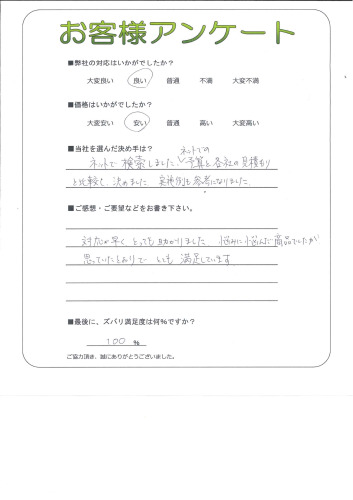 お客様アンケート
■弊社の対応はいかがでしたか？
大変良い 良い 普通 不満 大変不満
■価格はいかがでしたか？
大変安い 安い 普通 高い 大変高い
■当社を選んだ決め手は？
ネットでの
ネットで検索しました、予算と各社の見積もり
と比較し、決めました 実積例も参考になりました
■ご感想・ご要望などをお書き下さい。
対応が早く、とっても助かりました 悩みに悩んだ商品でしたが
思っていたとおりで とても満足しています
■最後に、ズバリ満足度は何％ですか？
100 ％
ご協力頂き、誠にありがとうございました。